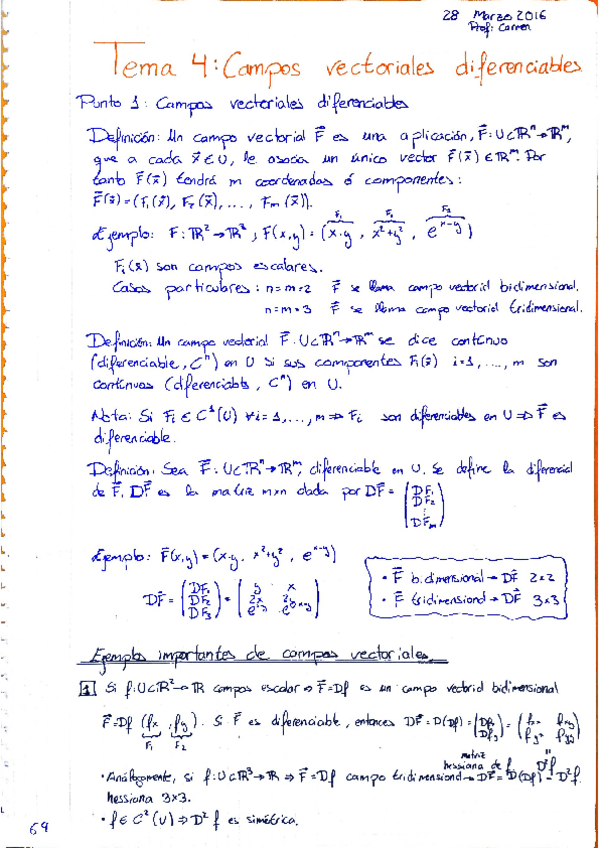 28 Marzo 2016
Prof: Carmen
Tema 4: Campos vectoriales diferenciables
Punto 1: Campos vectoriales diferenciables
Definición: Un campo vectorial F⃗ es una aplicación, F⃗: U⊂ℝⁿ→ℝᵐ,
que a cada x⃗∈U, le asocia un único vector F⃗(x⃗)∈ℝᵐ. Por
tanto F⃗(x⃗) tendrá m coordenadas ó componentes:
F⃗(x⃗)=(F₁(x⃗), F₂(x⃗), ..., Fₘ(x⃗)).
F₁ F₂ F₃
Ejemplo: F: ℝ²→ℝ³, F(x,y) = (x·y, x²+y², e^(x-y))
Fᵢ(x⃗) son campos escalares.
Casos particulares: n=m=2 F⃗ se llama campo vectorial bidimensional.
n=m=3 F⃗ se llama campo vectorial tridimensional.
Definición: Un campo vectorial F⃗: U⊂ℝⁿ→ℝᵐ se dice continuo
(diferenciable, Cⁿ) en U si sus componentes Fᵢ(x⃗) i=1,...,m son
continuas (diferenciable, Cⁿ) en U.
Nota: Si Fᵢ∈C¹(U) ∀i=1,...,m ⇒ Fᵢ son diferenciables en U ⇒ F⃗ es
diferenciable.
Definición: Sea F⃗: U⊂ℝⁿ→ℝᵐ, diferenciable en U. Se define la diferencial
de F⃗, DF⃗ es la matriz m×n dada por DF⃗ = (DF₁ DF₂ ⋮ DFₘ)
Ejemplo: F⃗(x,y) = (x·y, x²+y², e^(x-y))
DF⃗ = (DF₁ DF₂ DF₃) = (y x 2x 2y
• F⃗ bidimensional → DF⃗ 2×2
• F⃗ tridimensional → DF⃗ 3×3
Ejemplos importantes de campos vectoriales
1 Si f: U⊂ℝ²→ℝ campos escalar ⇒ F⃗=Df es un campo vectorial bidimensional
F⃗=Df (fx, fy). Si F⃗ es diferenciable, entonces DF⃗ = D(Df) = (Dfx Dfy) = (fx² fxy fyx fyy)
F₁ F₂
matriz
hessiana de f D²f
• Análogamente, si f: U⊂ℝ³→ℝ ⇒ F⃗=Df campo tridimensional → DF⃗ = D(Df) = D²f.
hessiana 3×3.
• f∈C²(U) ⇒ D²f es simétrica.
69